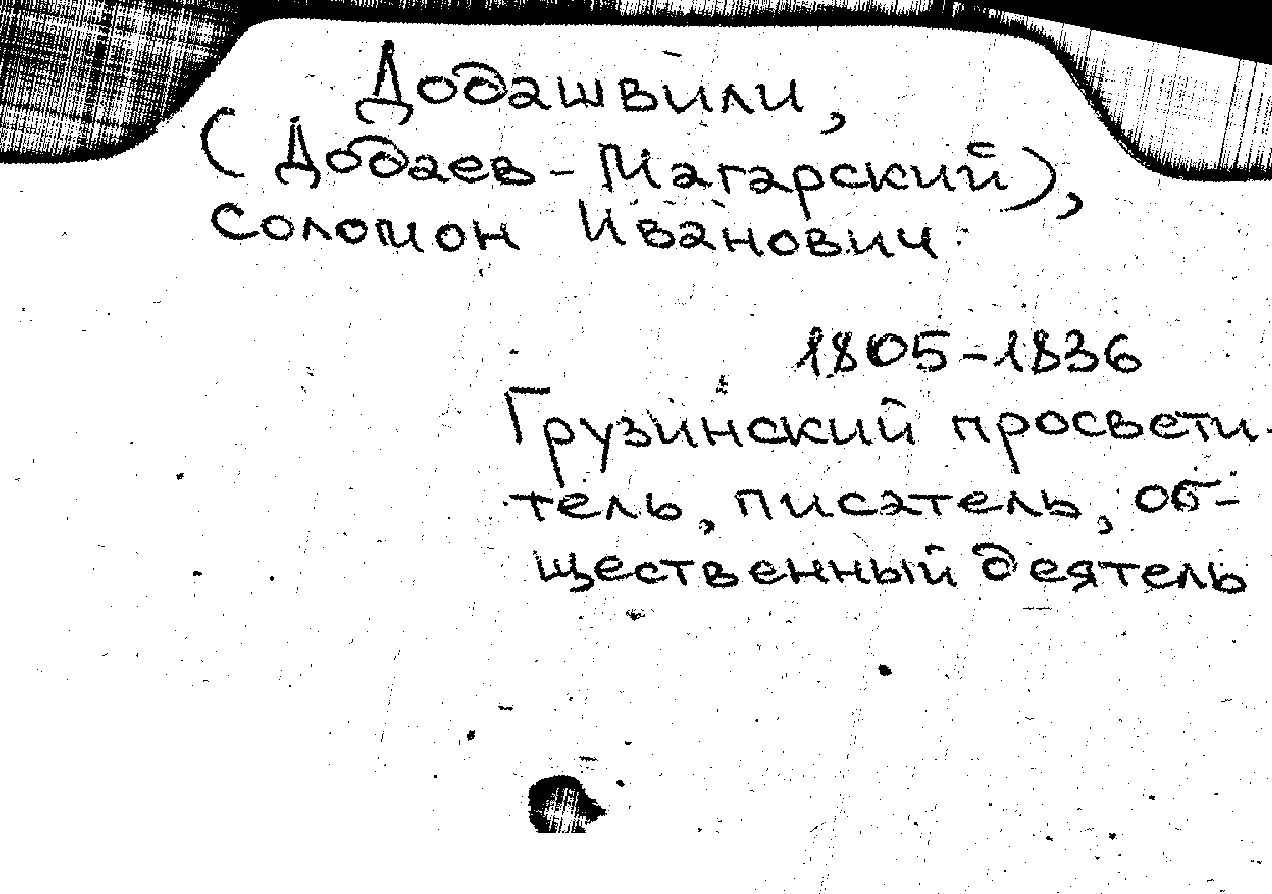 Додашвили,
(Додаев-Магарский),
Соломон Иванович
1805-1836
Грузинский просвети-
тель, писатель, об-
щественный деятель